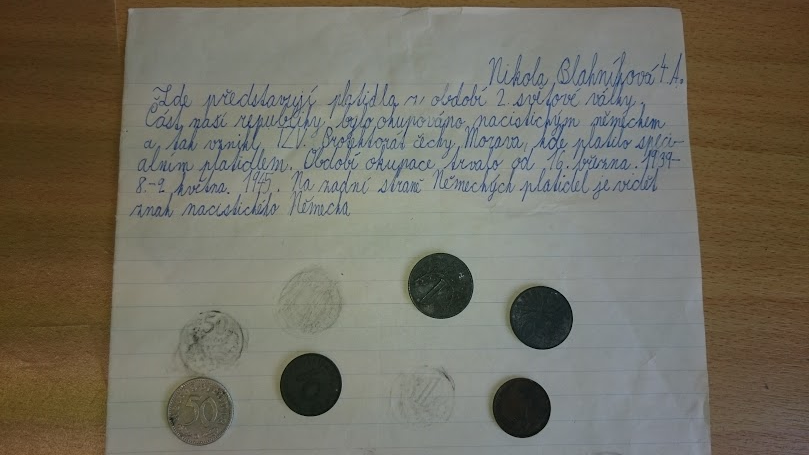 Nikola Blahníková 4.A.
Zde představují platidla z období 2. světové války.
Část naší republiky, bylo okupováno, nacistickým německem
a tak vznikl, tzv. Protektorát Čechy, Morava, kde platilo speci-
álním platidlem. Období okupace trvalo od 1 března. 1939-
8.-9 května. 1945. Na zadní straně Německých platidel je vidět
znak nacistického Německa
50